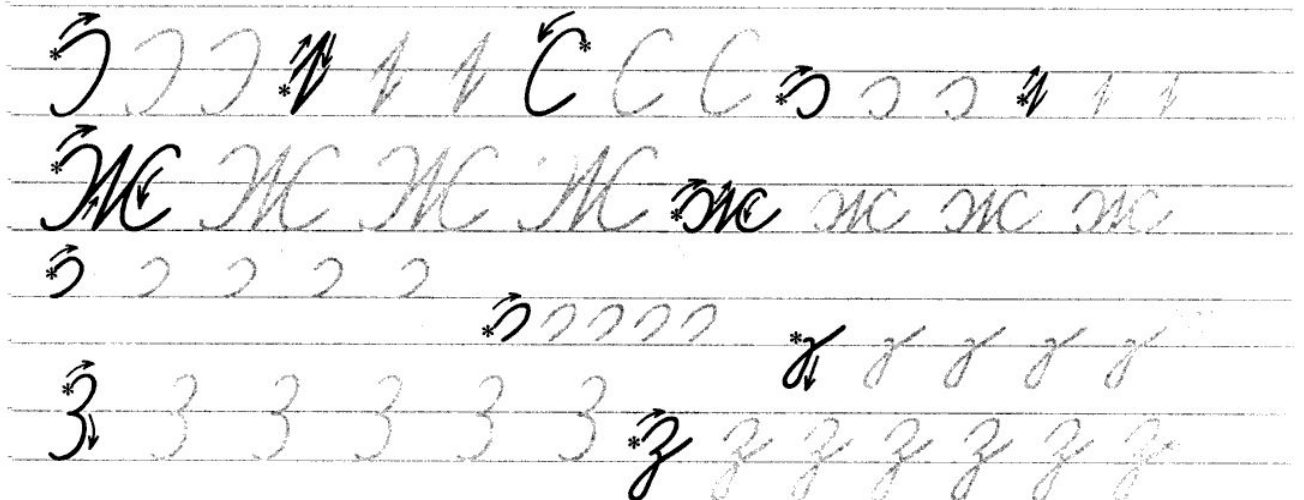 Ж Ж Ж Ж ж ж ж ж
З З З З З З з з з з з з з